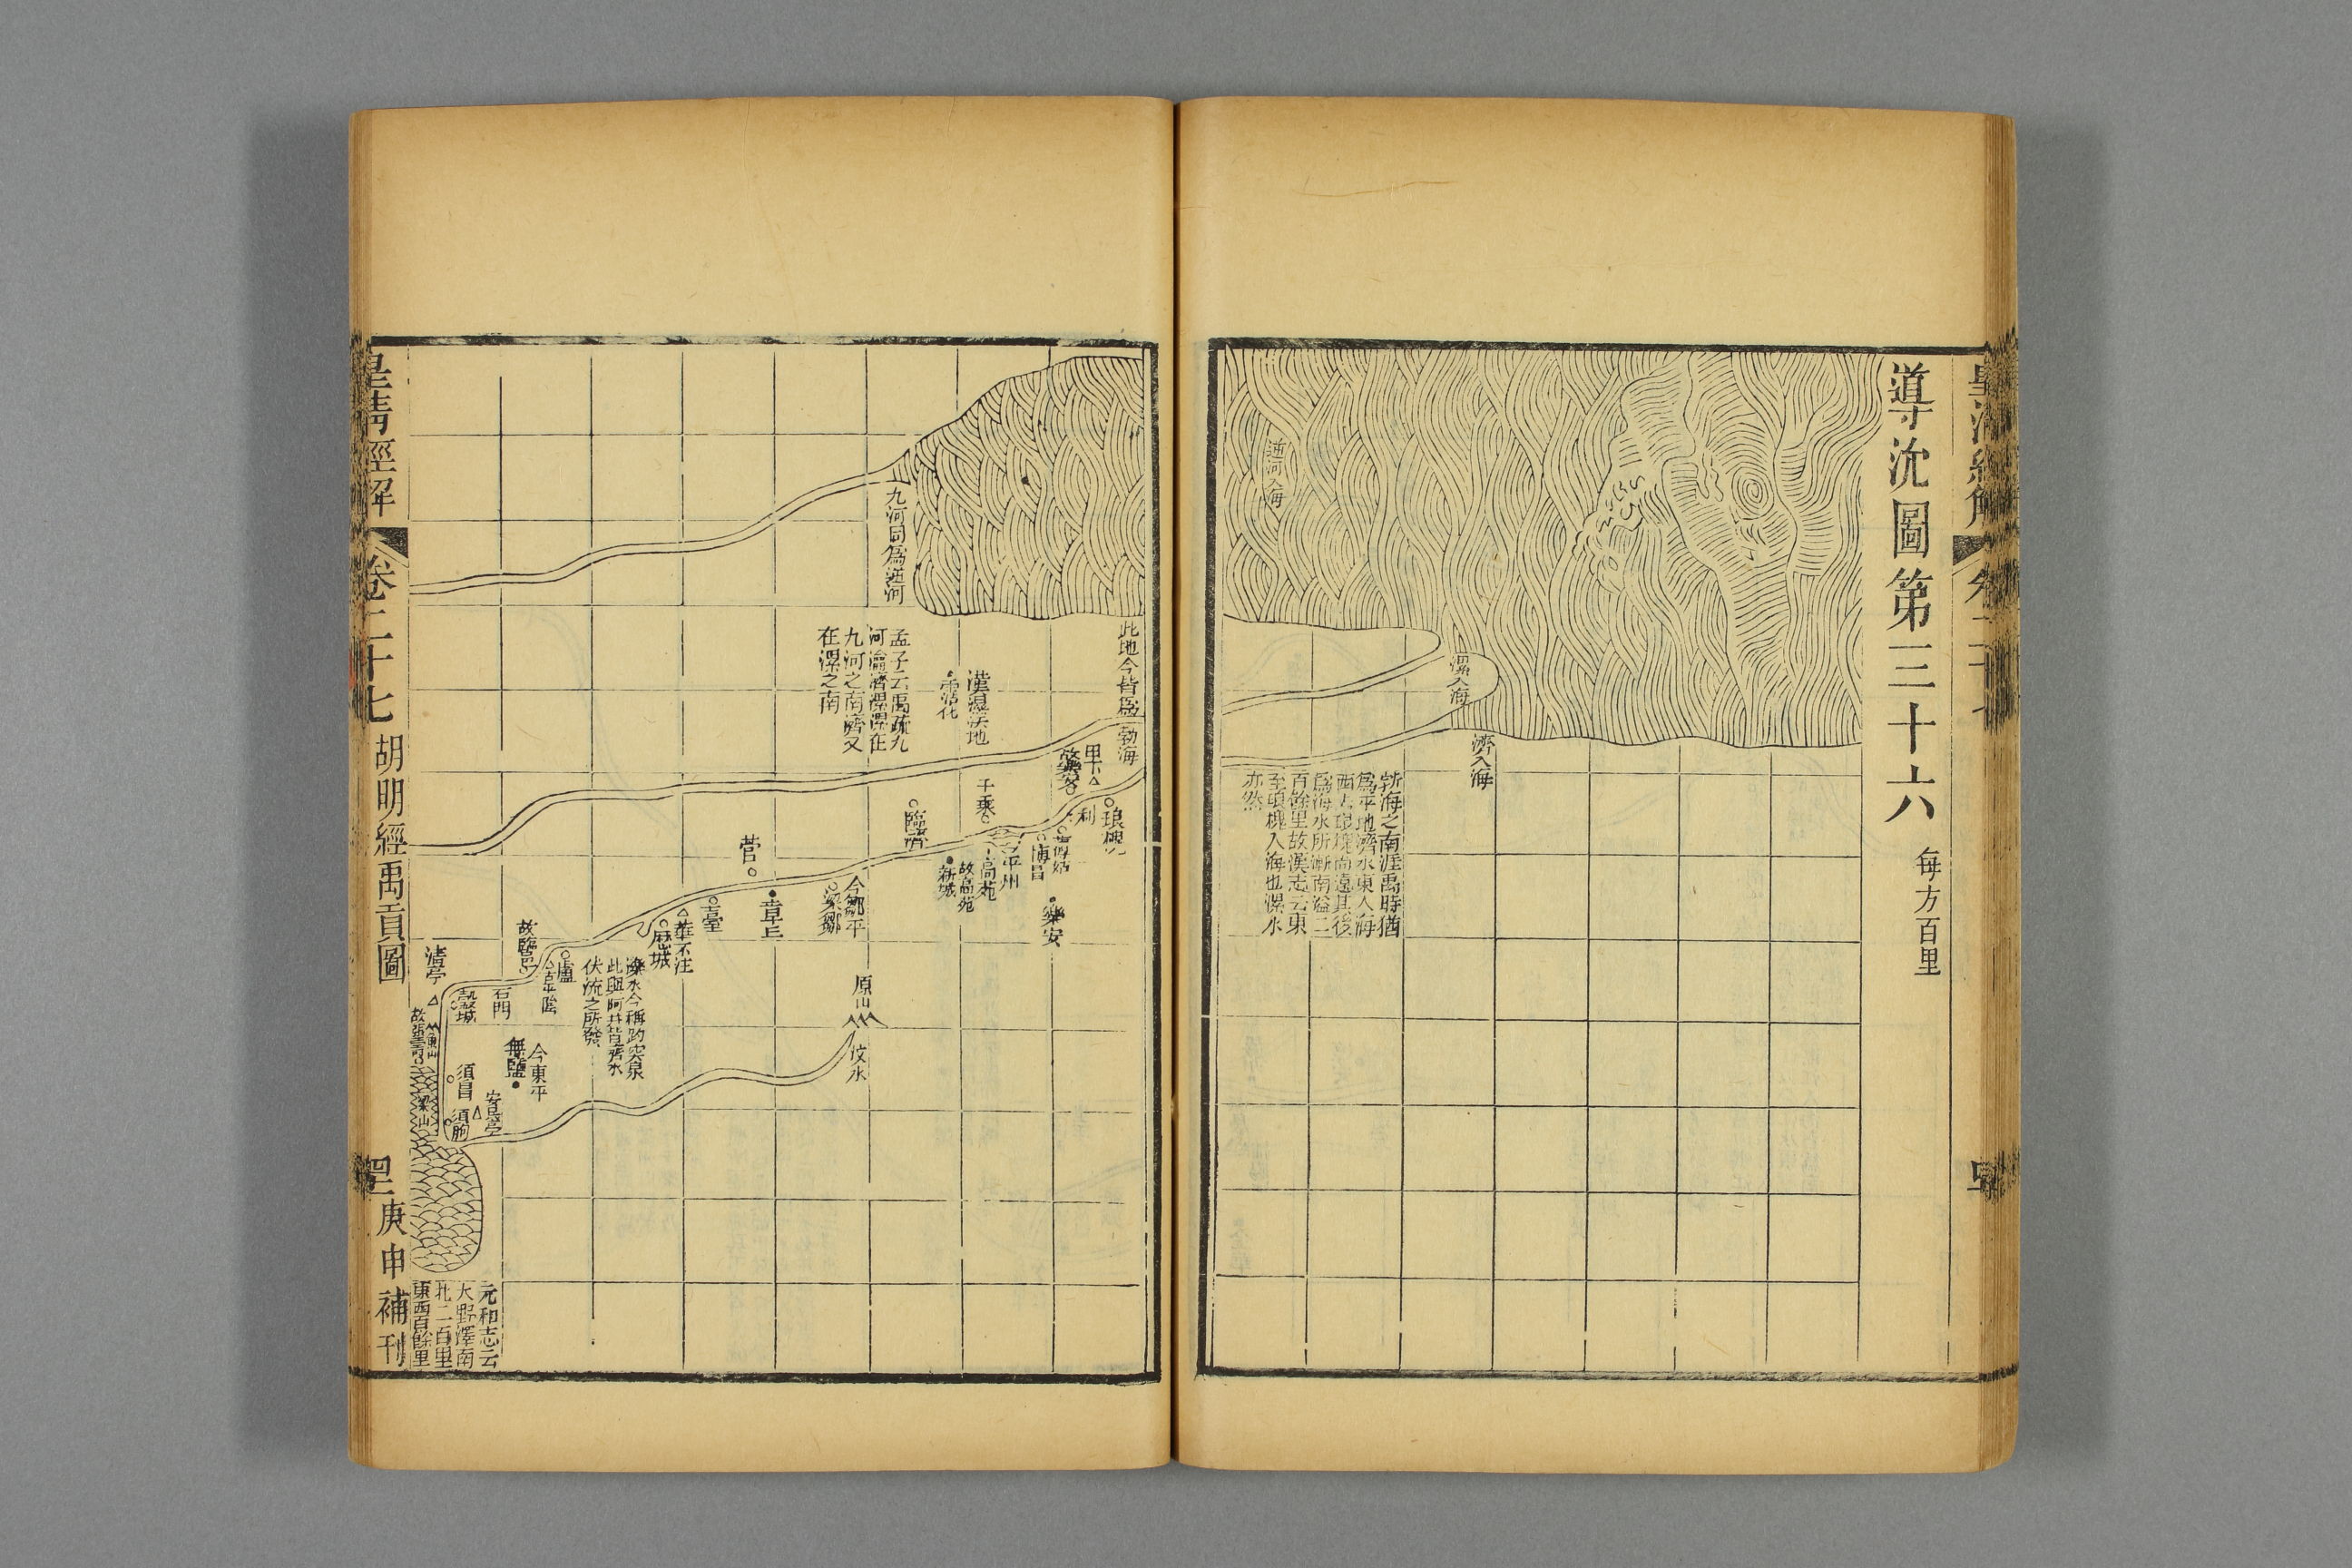 導沇圖第三十六
每方百里
逆河入海
漯入海
濟入海
勃海之南涯禹時猶
爲平地濟水東入海
西去琅槐尚遠其後
爲海水所漸南溢二
百餘里故漢志云東
至琅槐入海也漯水
亦然
此地今皆爲勃海
甲下
琅槐
利
博昌
樂安
千乘
平州
高苑
故高苑
新城
漢濕沃地
今霑化
九河同爲逆河
孟子云禹疏九
河瀹濟漯漯在
九河之南濟又
在漯之南
臨濟
今鄒平
梁鄒
原山
汶水
章丘
菅
臺
華不注
歷城
濼水今稱趵突泉
此與阿井皆濟水
伏流之所發
盧
平陰
故臨邑
石門
今東平
無鹽
安民亭
須昌
須朐
穀城
清亭
梁山
元和志云
大野澤南
北二百里
東西百餘里
皇清經解
卷二十七
胡明經禹貢圖
庚申補刊